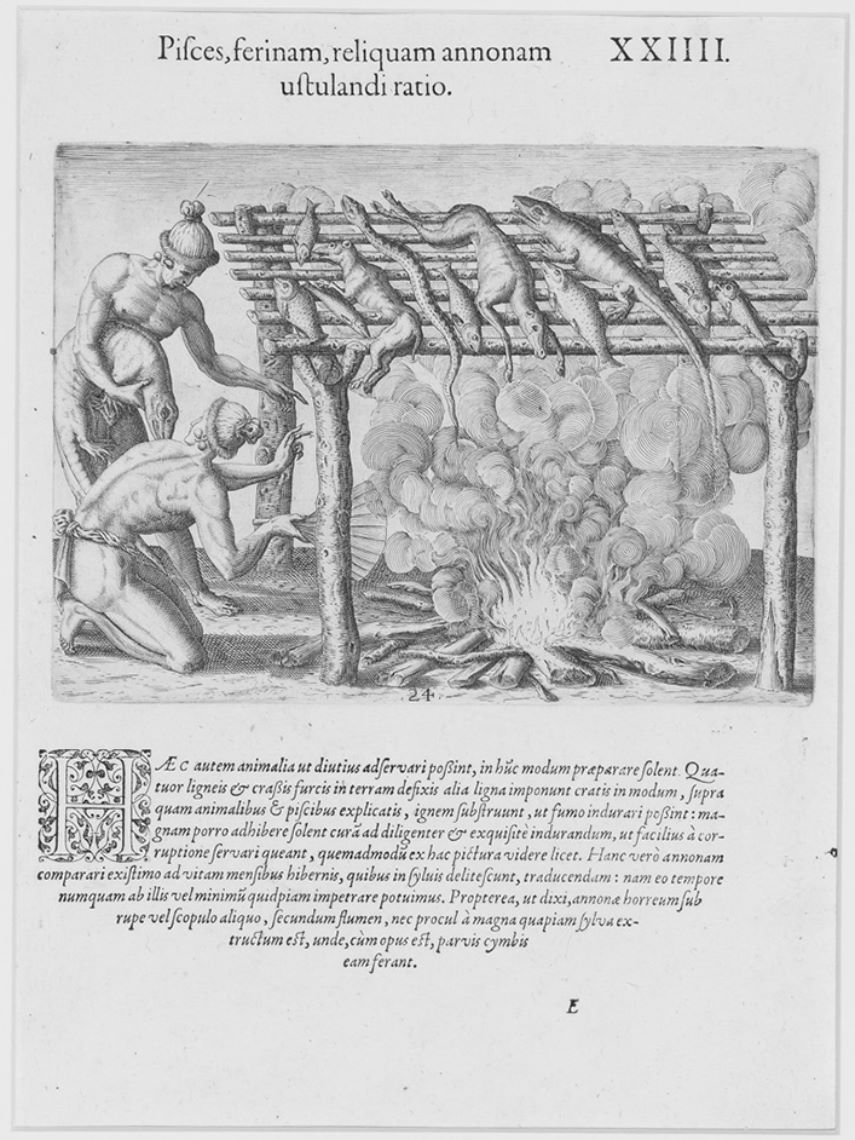 Piſces, ferinam, reliquam annonam XXIIII.
uſtulandi ratio.
24.
HÆC autem animalia ut diutius adſervari poßint, in hũc modum præparare ſolent. Qua-
tuor ligneis & craßis furcis in terram defixis alia ligna imponunt cratis in modum, ſupra
quam animalibus & piſcibus explicatis, ignem ſubſtruunt, ut fumo indurari poßint: ma-
gnam porro adhibere ſolent curã ad diligenter & exquiſitè indurandum, ut facilius à cor-
ruptione ſervari queant, quemadmodũ ex hac pictura videre licet. Hanc verò annonam
comparari exiſtimo ad vitam menſibus hibernis, quibus in ſyluis deliteſcunt, traducendam: nam eo tempore
numquam ab illis vel minimũ quidpiam impetrare potuimus. Propterea, ut dixi, annonæ horreum ſub
rupe vel ſcopulo aliquo, ſecundum flumen, nec procul à magna quapiam ſylva ex-
tructum eſt, unde, cùm opus eſt, parvis cymbis
eam ferant.
E